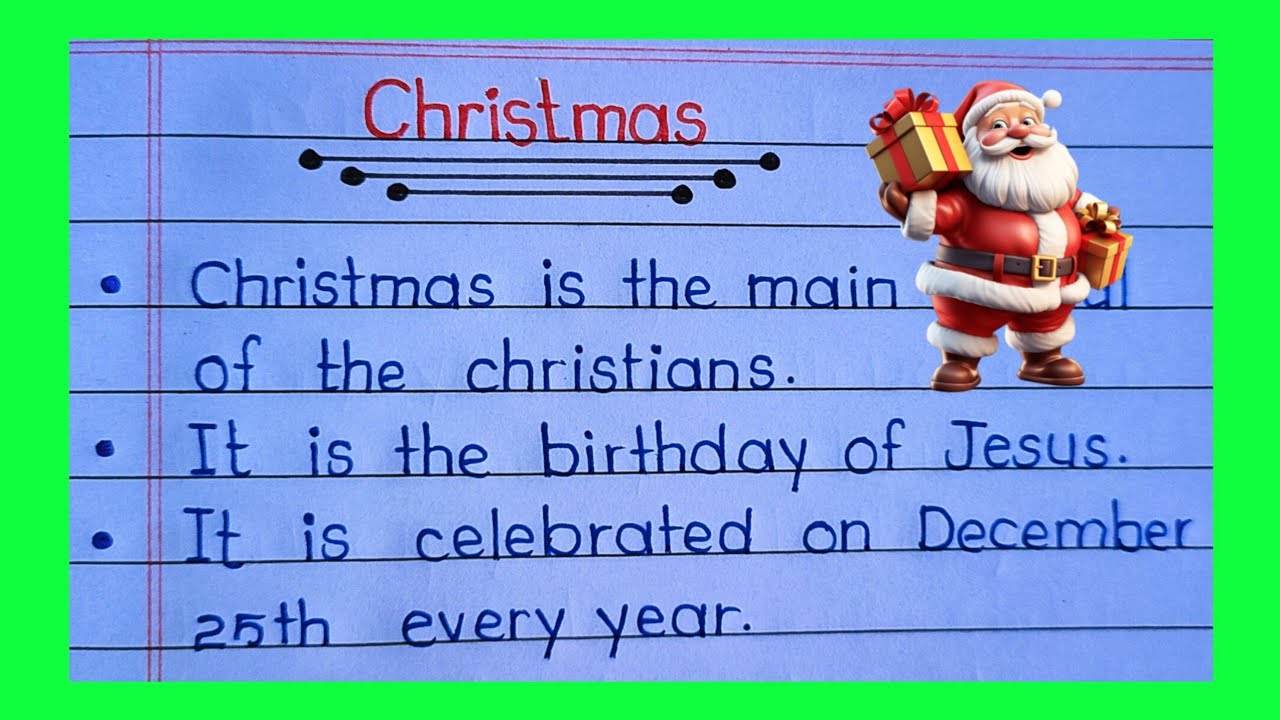 Christmas
• Christmas is the main
of the christians.
• It is the birthday of Jesus.
• It is celebrated on December
25th every year.